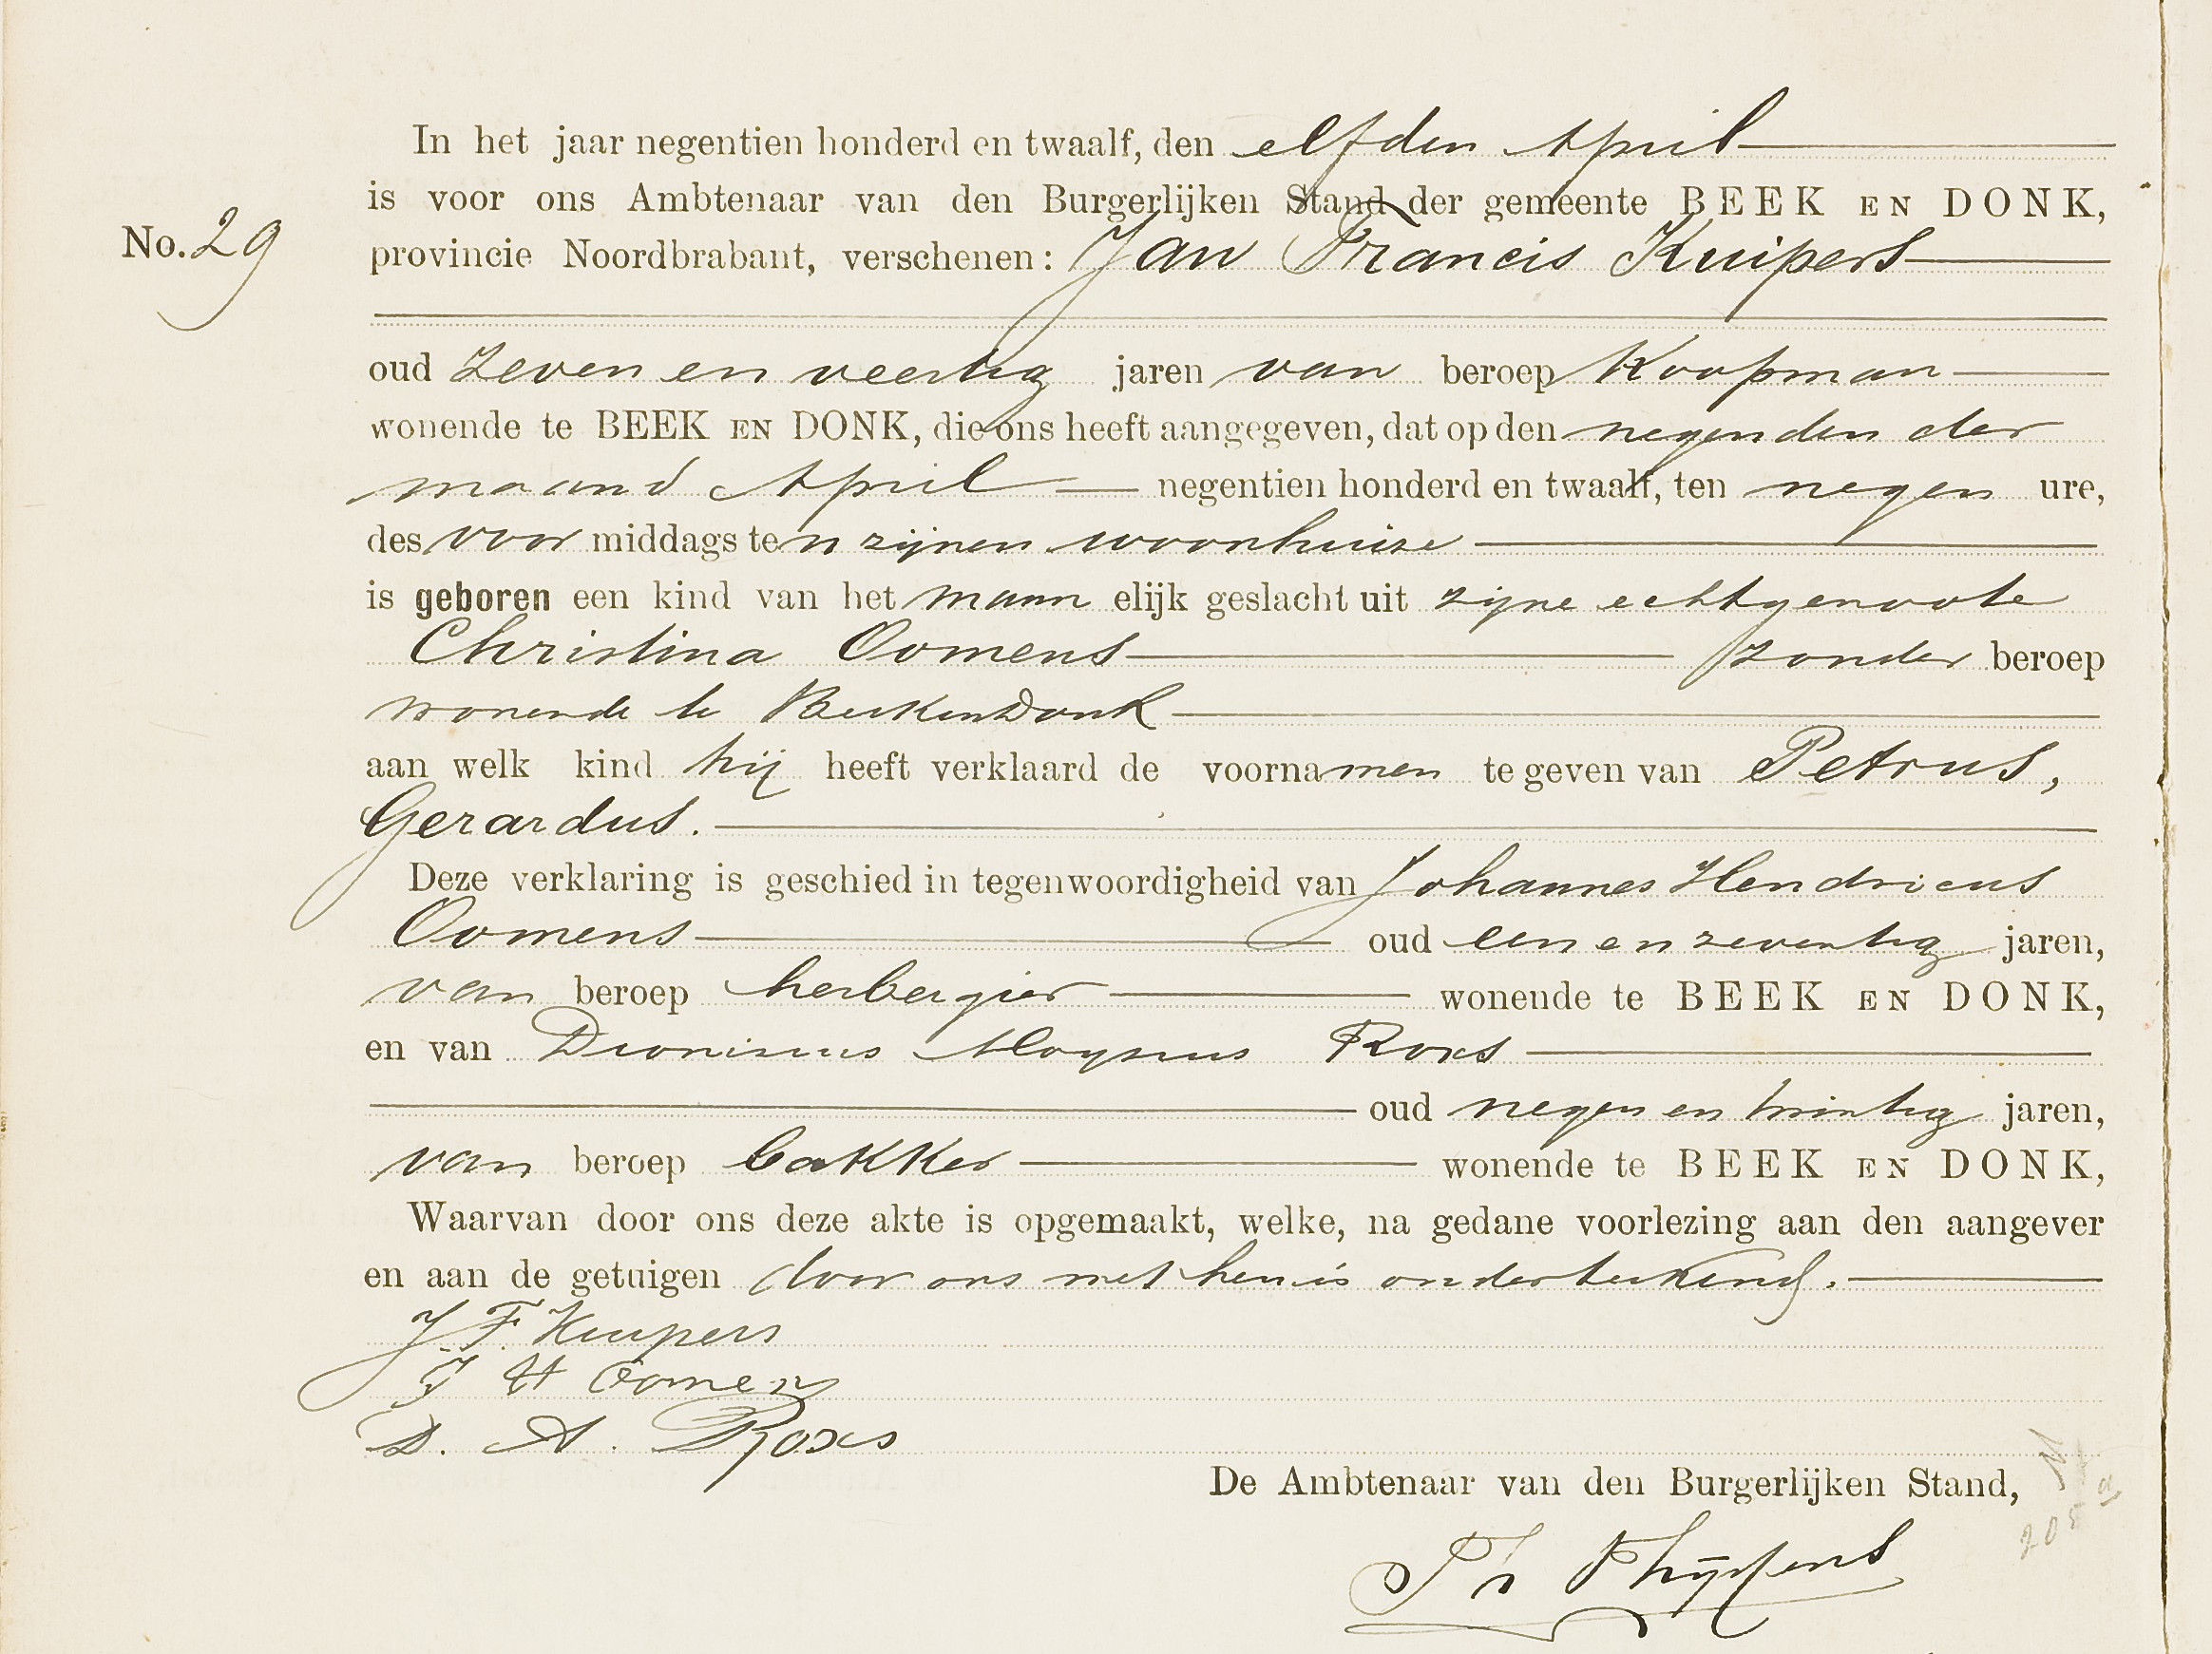 In het jaar negentien honderd en twaalf, den elfden April
is voor ons Ambtenaar van den Burgerlijken Stand der gemeente BEEK EN DONK,
No. 29
provincie Noordbrabant, verschenen: Jan Francis Kuipers
oud zeven en veertig jaren van beroep Koopman
wonende te BEEK EN DONK, die ons heeft aangegeven, dat op den negenden der
maand April negentien honderd en twaalf, ten negen ure,
des voor middags ten zijnen woonhuize
is geboren een kind van het mann elijk geslacht uit zijne echtgenoote
Christina Oomens zonder beroep
wonende te Beek en Donk
aan welk kind hij heeft verklaard de voornamen te geven van Petrus,
Gerardus.
Deze verklaring is geschied in tegenwoordigheid van Johannes Hendricus
Oomens oud een en zeventig jaren,
van beroep herbergier wonende te BEEK EN DONK,
en van Dionisius Aloysius Roxs
oud negen en twintig jaren,
van beroep bakker wonende te BEEK EN DONK,
Waarvan door ons deze akte is opgemaakt, welke, na gedane voorlezing aan den aangever
en aan de getuigen door ons met hen is onderteekend.
J. F. Kuipers
J H Oomens
D. A. Roxs
De Ambtenaar van den Burgerlijken Stand,
Th Thijssens